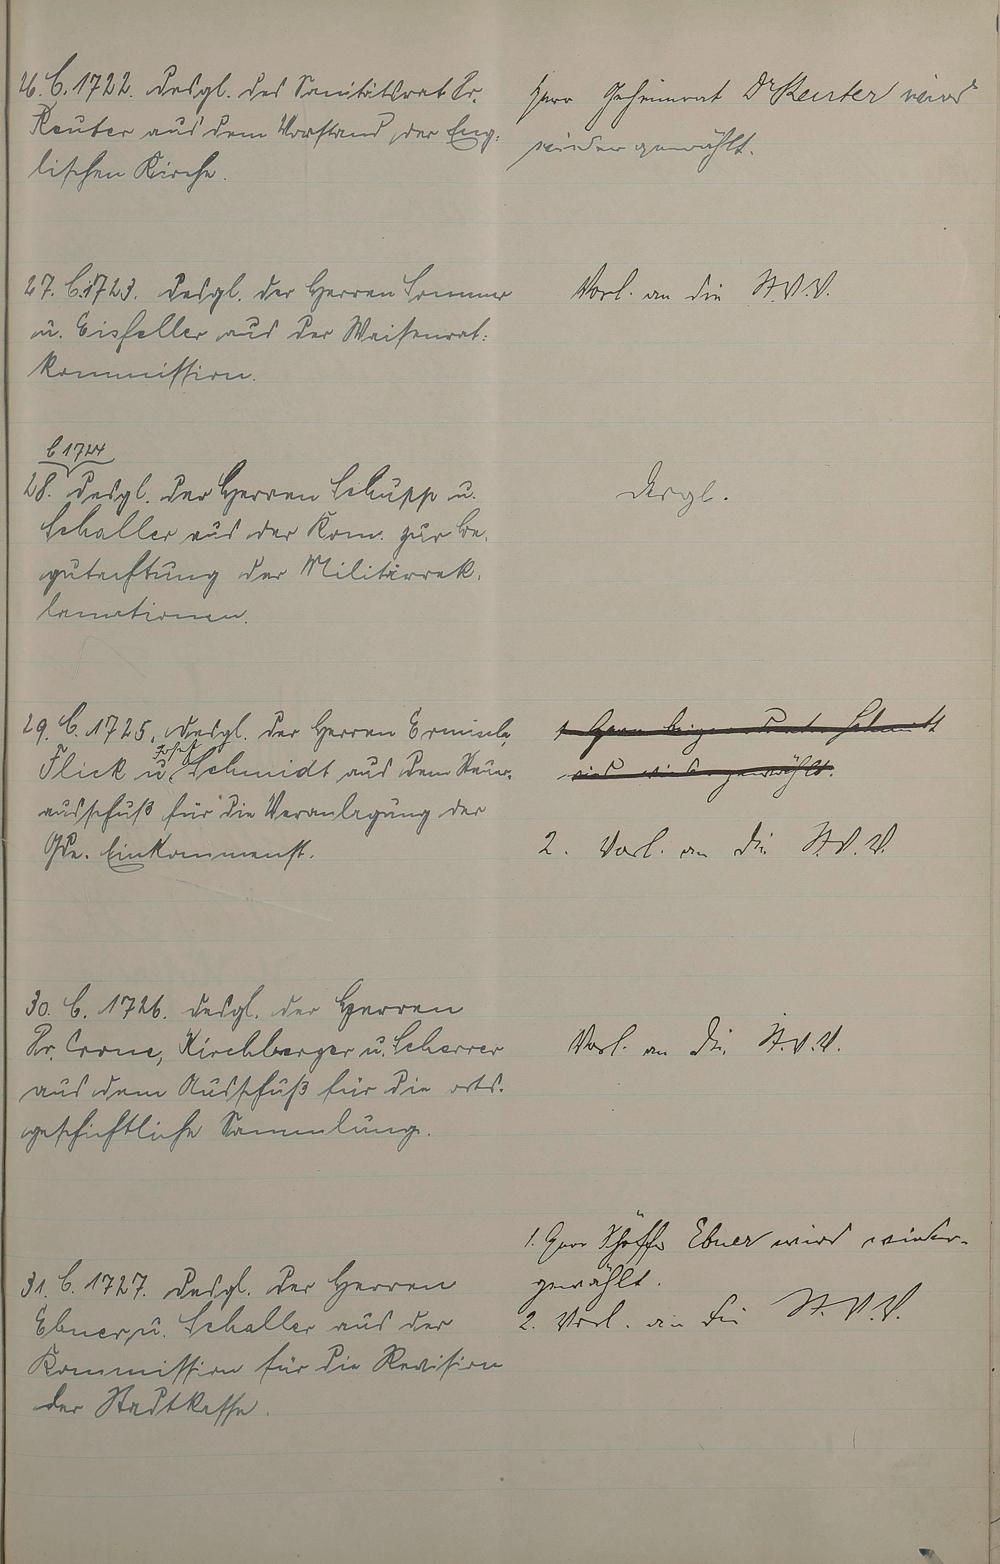 26. C. 1722. Desgl. des Sanitätsrat Dr.
Reuter aus dem Vorstand der Eng-
lischen Kirche.
Herr Geheimrat Dr Reuter wird
wieder gewählt.
27. C. 1723. Desgl. der Herren Sommer
u. Eisfeller aus der Waisenrat-
kommission.
Vorl. an die St.V.V.
C 1724
28. Desgl. der Herren Schupp u.
Schaller aus der Kom. zur Be-
gutachtung der Militärrek-
lamationen.
Desgl.
29. C. 1725. Desgl. der Herren
Josef
Flick u. Schmidt aus dem Steuer-
ausschuß für die Veranlagung der
Gde. Einkommenst.
Herr Schmidt
wird wiedergewählt.
2. Vorl. an die St.V.V.
30. C. 1726. Desgl. der Herren
Dr. Crone, Kirchberger u. Scherrer
aus dem Ausschuß für die orts-
geschichtliche Sammlung.
Vorl. an die St.V.V.
31. C. 1727. Desgl. der Herren
Ebner u. Schaller aus der
Kommission für die Revision
der Stadtkasse.
1. Herr Schöffe Ebner wird wieder-
gewählt.
2. Vorl. an die St.V.V.